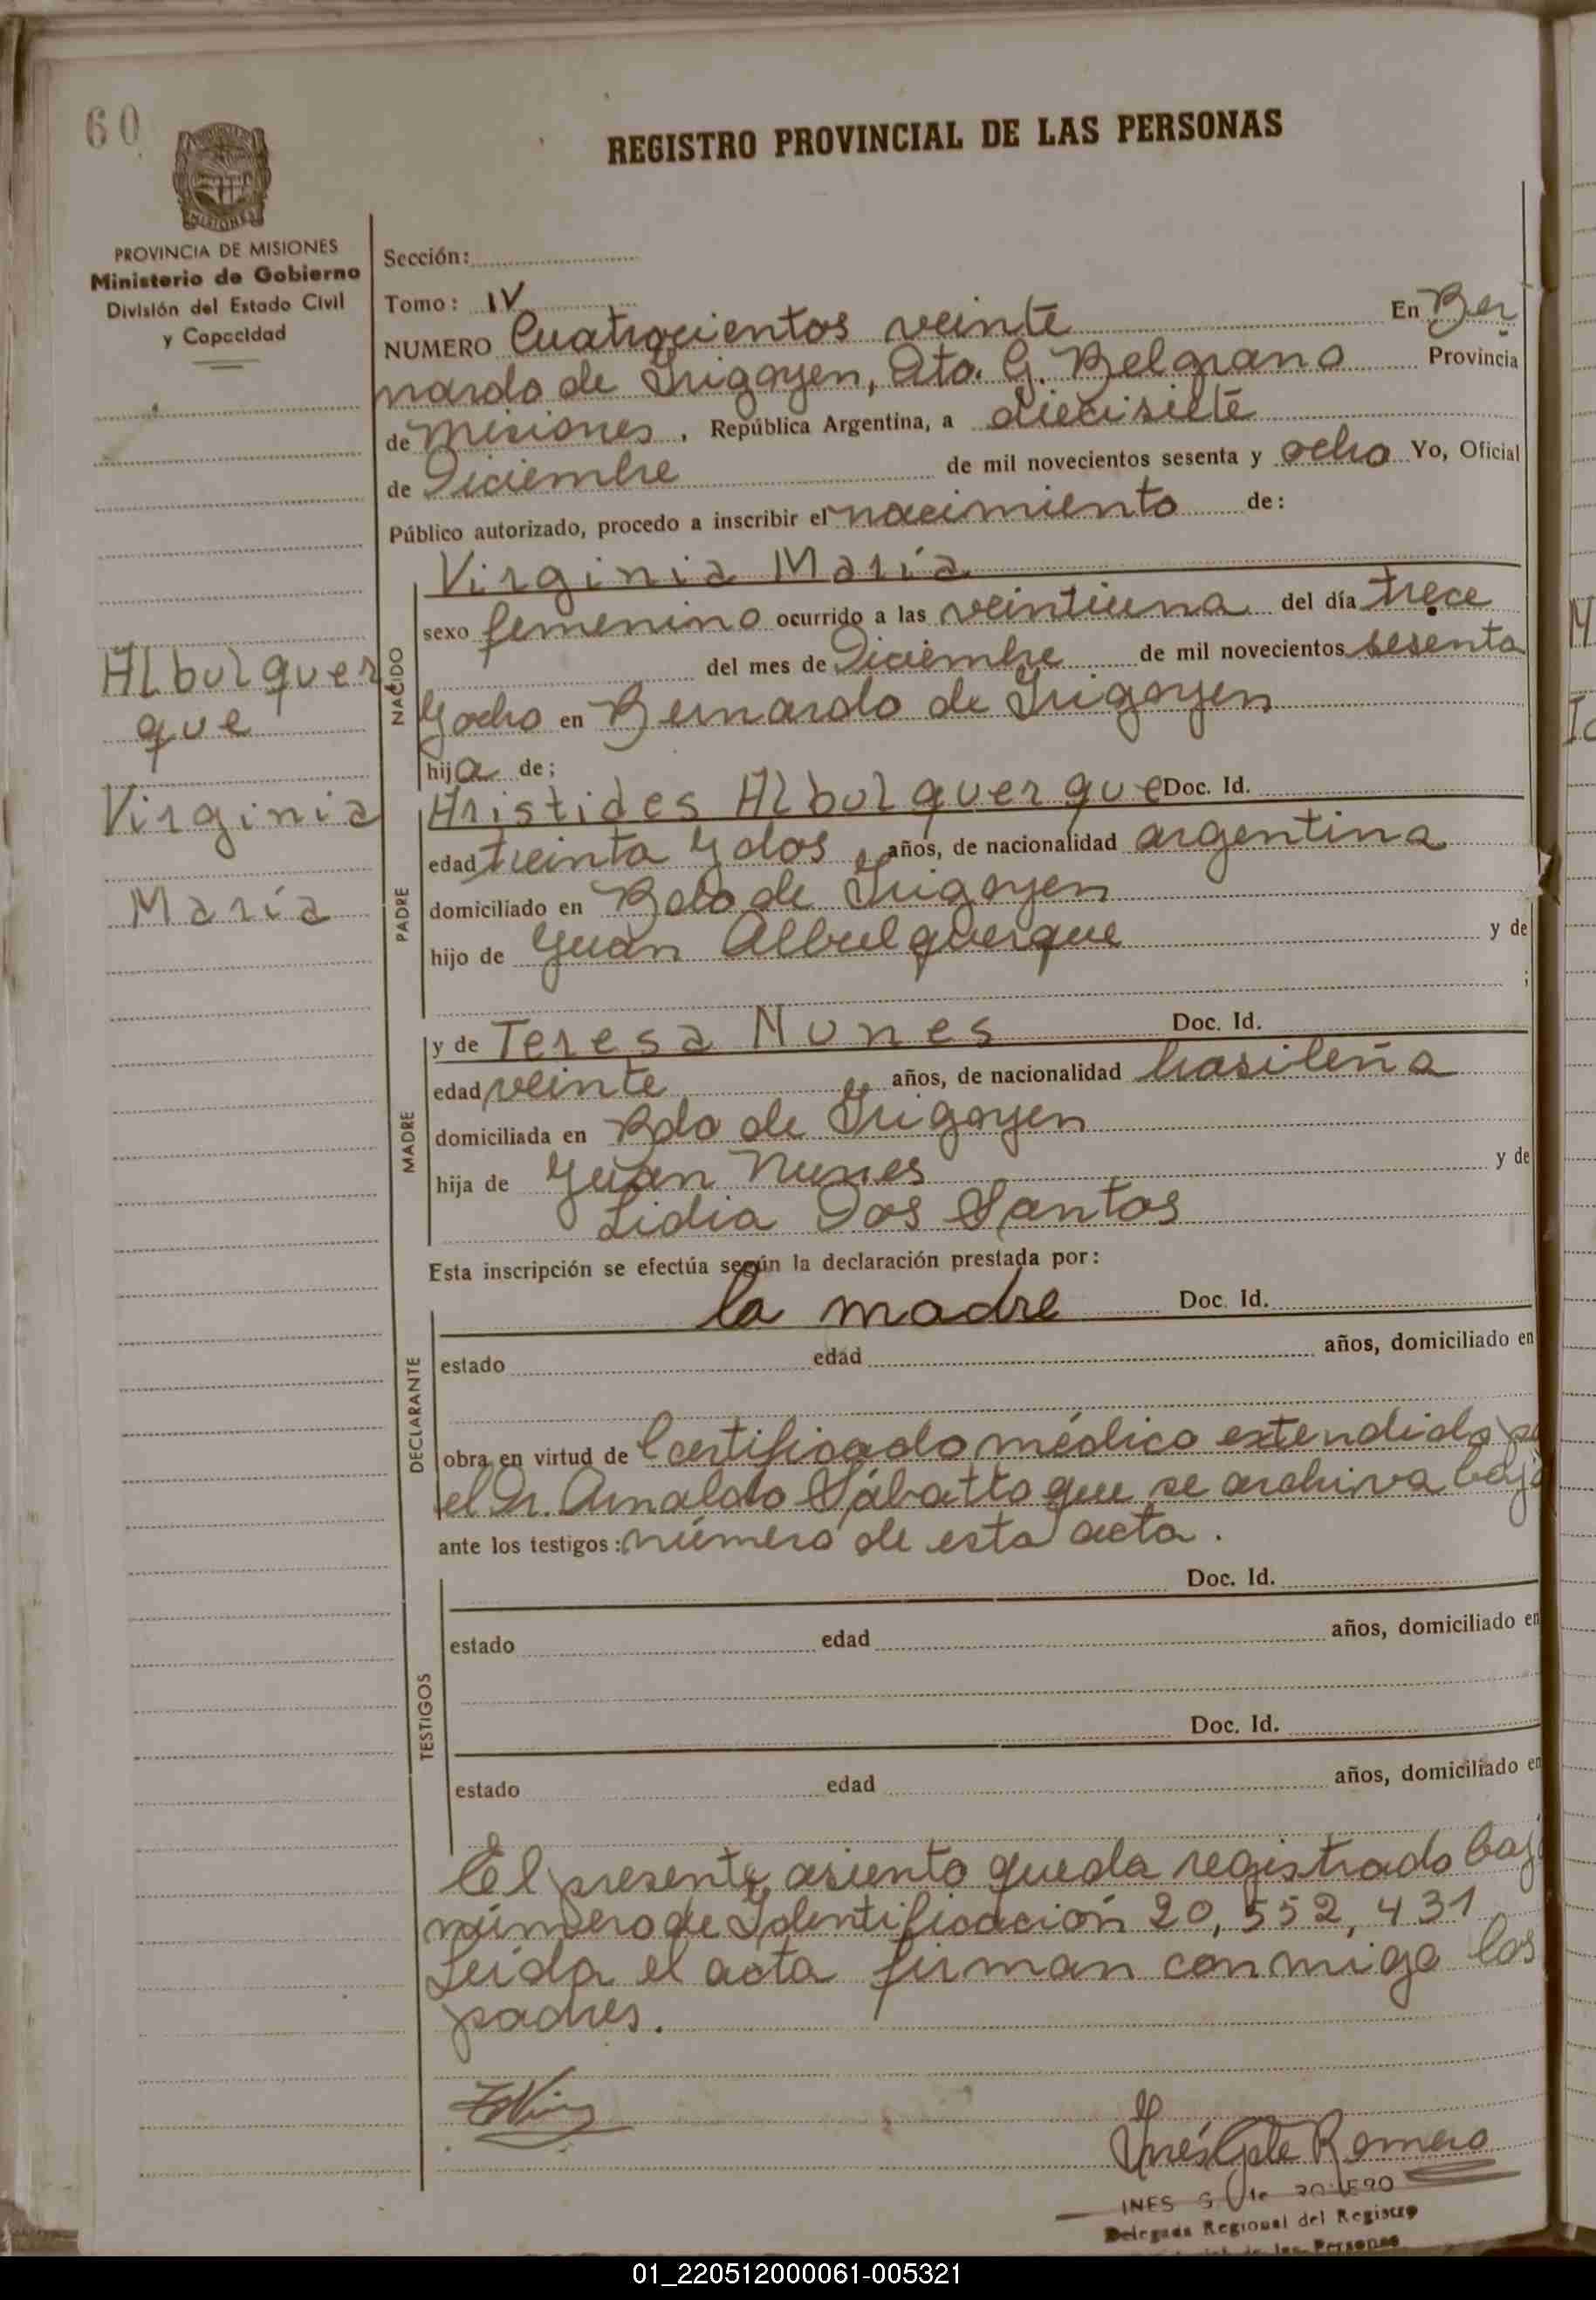 60
REGISTRO PROVINCIAL DE LAS PERSONAS
MISIONES
PROVINCIA DE MISIONES
Ministerio de Gobierno
División del Estado Civil
y Capacidad
Sección:
Tomo: IV
NUMERO Cuatrocientos veinte En Ber
nardo de Irigoyen, Dto. G. Belgrano Provincia
de Misiones, República Argentina, a diecisiete
de Diciembre de mil novecientos sesenta y ocho Yo, Oficial
Público autorizado, procedo a inscribir el nacimiento de:
Virginia María
NACIDO
sexo femenino ocurrido a las veintiuna del día trece
del mes de Diciembre de mil novecientos sesenta
y ocho en Bernardo de Irigoyen
hija de;
Alburquer
que
Virginia
María
PADRE
Aristides Alburquerque Doc. Id.
edad treinta y dos años, de nacionalidad argentina
domiciliado en Bdo de Irigoyen
hijo de Juan Albulquerque y de
;
MADRE
y de Teresa Nunes Doc. Id.
edad veinte años, de nacionalidad brasileña
domiciliada en Bdo de Irigoyen
hija de Juan Nunes y de
Lidia Dos Santos
Esta inscripción se efectúa según la declaración prestada por:
DECLARANTE
la madre Doc. Id.
estado edad años, domiciliado en
obra en virtud de Certificado médico extendido
el Dr. Arnaldo Sábatto que se archiva bajo
ante los testigos: número de esta acta.
TESTIGOS
Doc. Id.
estado edad años, domiciliado en
Doc. Id.
estado edad años, domiciliado en
El presente asiento queda registrado bajo
número de Identificación 20,552,431
Leída el acta firman conmigo los
padres.
Romero
INES
Delegada Regional del Registro
de las Personas
01_220512000061-005321